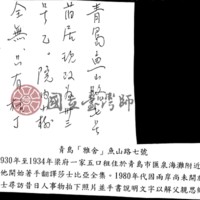 青島魚山路
舊居現改為
院內樹
全無,只有
國立臺灣師
青島「雅舍」魚山路七號
930年至1934年梁府一家五口租住於青島市匯泉海灘附近
他開始著手翻譯莎士比亞全集。1980年代因兩岸尚未開
士尋訪昔日人事物拍下照片並手書說明文字以解父親思